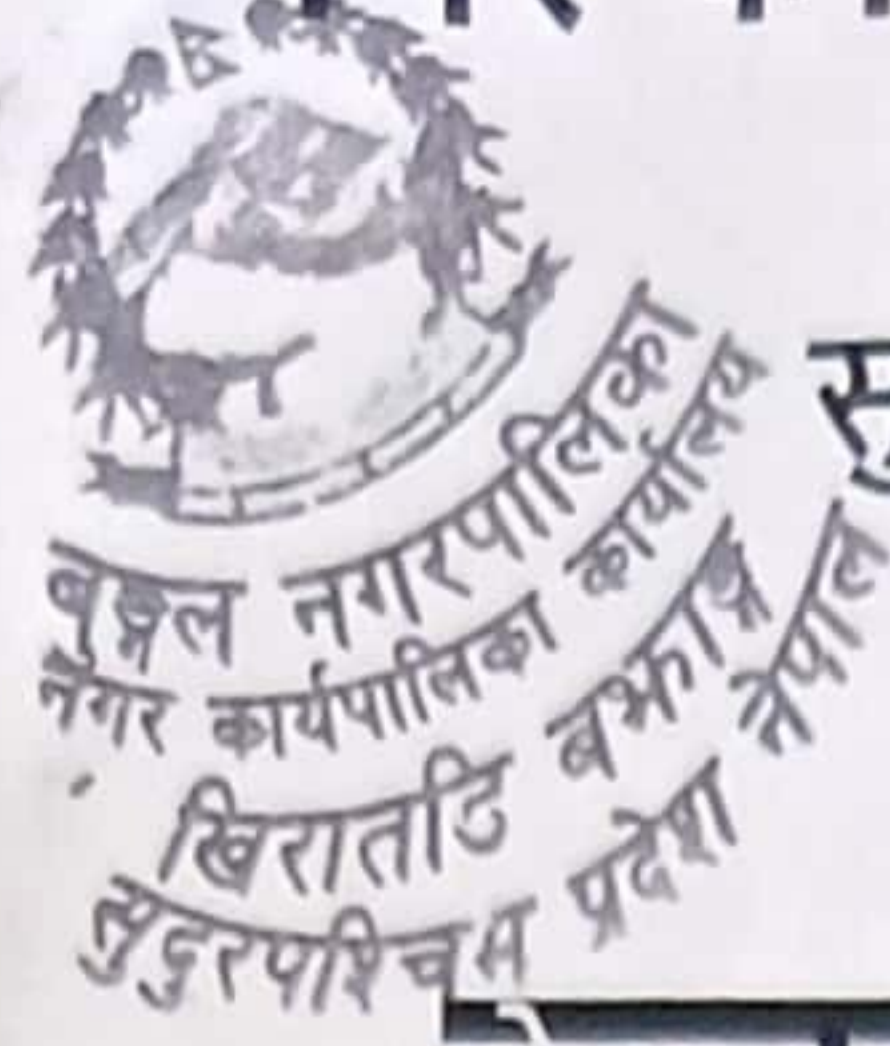 बुङ्गल नगरपालिका
नगर कार्यपालिका कार्यालय
खिरातडि बझाङ्ग
सुदुरपश्चिम प्रदेश नेपाल